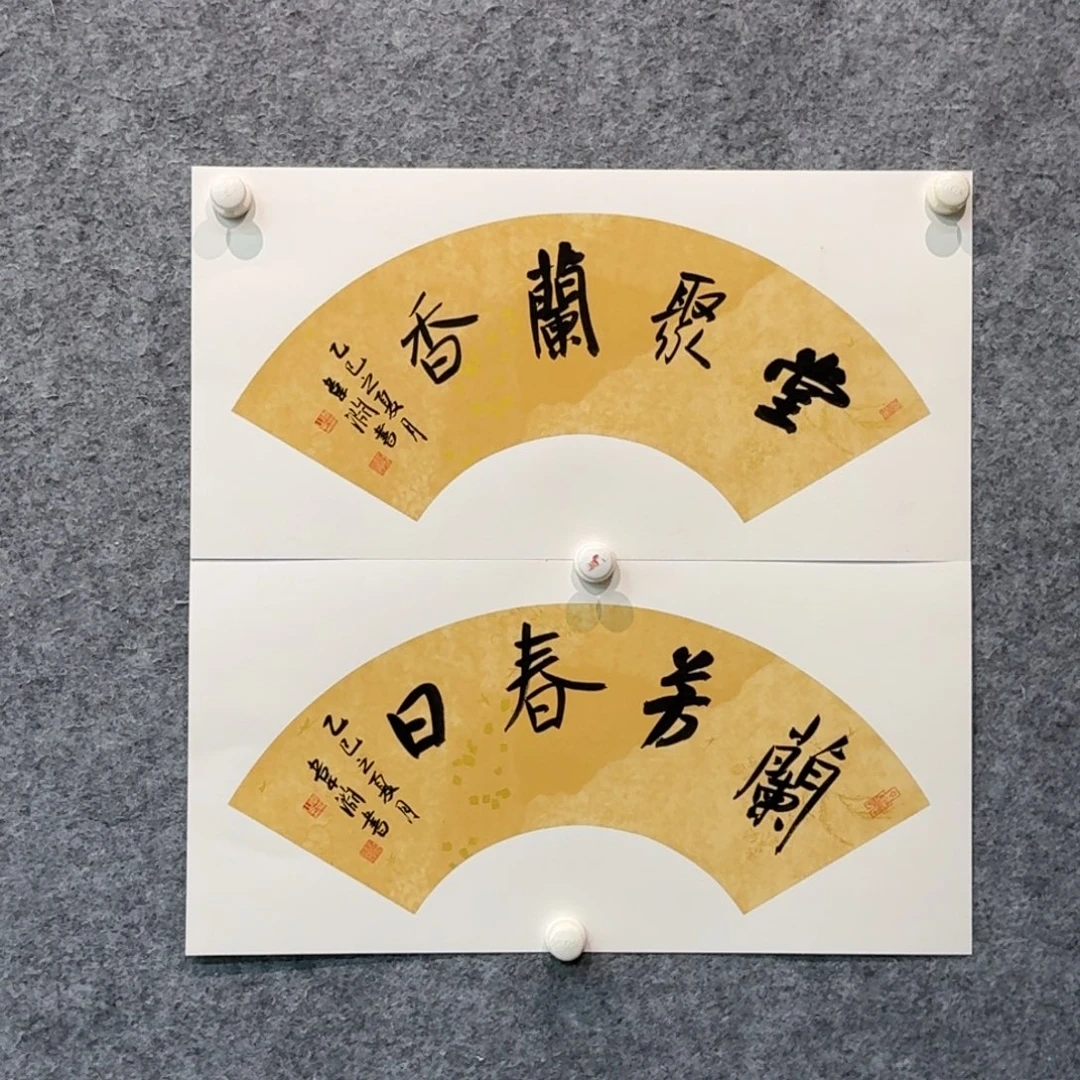 堂聚蘭香
乙巳之夏月
淵書
蘭芳春日
乙巳之夏月
淵書